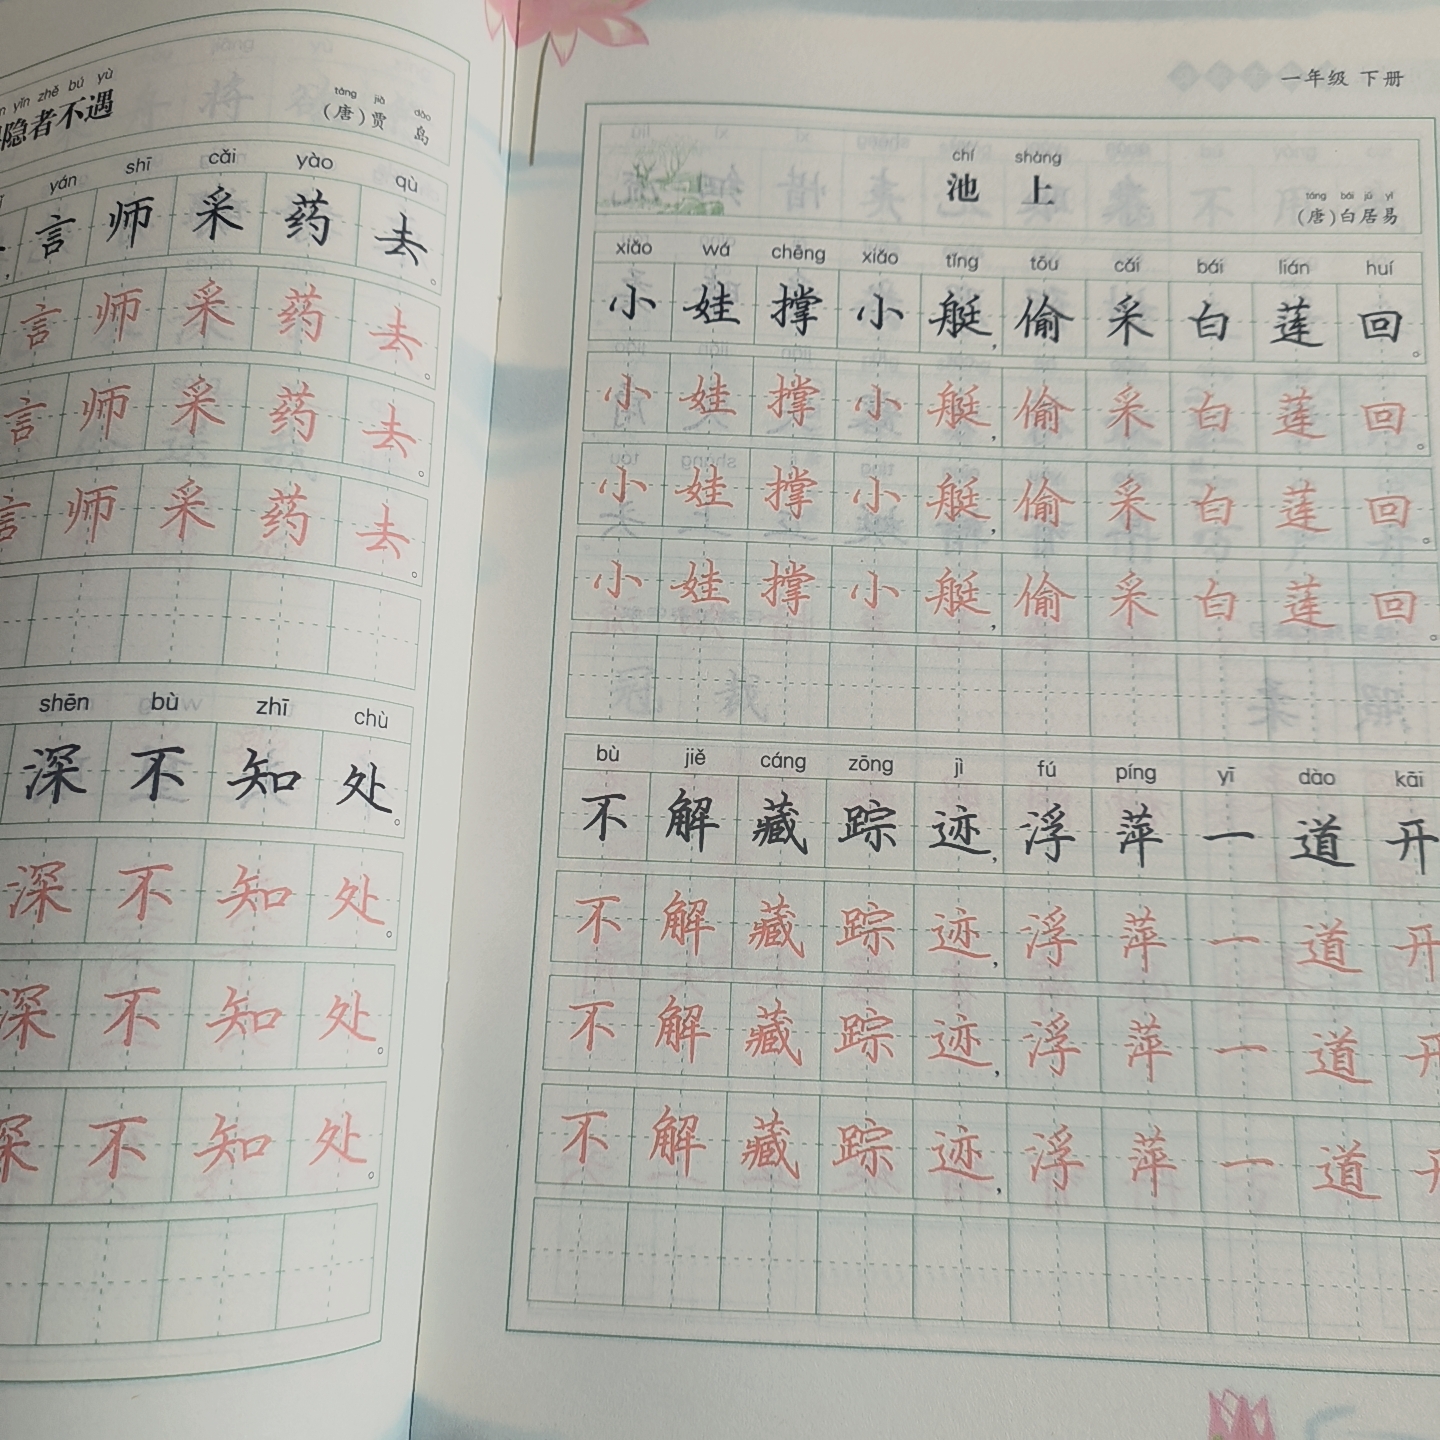 yǐn zhě bú yù
隐者不遇
táng jiǎ dǎo
(唐)贾 岛
yán shī cǎi yào qù
言师采药去。
言师采药去。
言师采药去。
言师采药去。
shēn bù zhī chù
深不知处。
深不知处。
深不知处。
深不知处。
一年级 下册
chí shàng
池 上
táng bái jū yì
(唐)白居易
xiǎo wá chēng xiǎo tǐng tōu cǎi bái lián huí
小娃撑小艇,偷采白莲回。
小娃撑小艇,偷采白莲回。
小娃撑小艇,偷采白莲回。
小娃撑小艇,偷采白莲回。
bù jiě cáng zōng jì fú píng yī dào kāi
不解藏踪迹,浮萍一道开
不解藏踪迹,浮萍一道开
不解藏踪迹,浮萍一道开
不解藏踪迹,浮萍一道开